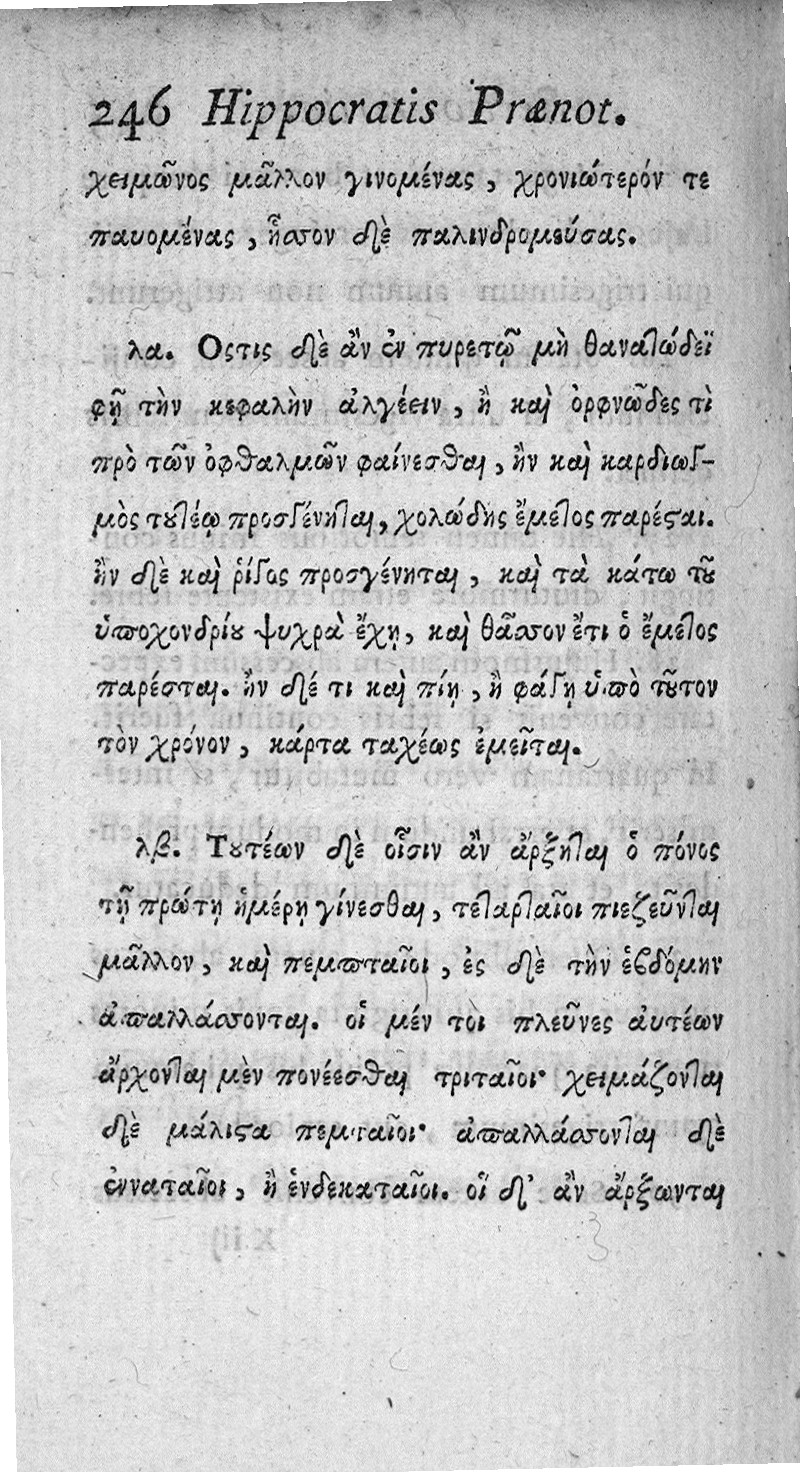 246 Hippocratis Prænot.
χειμῶνος μᾶλλον γινομένας, χρονιώτερόν τε
παυομένας, ἧσσον δὲ παλινδρομεύσας.
λα. Οςτις δὲ ἂν ἐν πυρετῷ μὴ θανατώδεϊ
φῇ τὴν κεφαλὴν ἀλγέειν, ἢ καὶ ὀρφνῶδες τὶ
πρὸ τῶν ὀφθαλμῶν φαίνεσθαι, ἢν καὶ καρδιωγ-
μὸς τουτέῳ προσγένηται, χολώδης ἔμετος παρέσται.
ἢν δὲ καὶ ῥίγος προσγένηται, καὶ τὰ κάτω τοῦ
ὑποχονδρίου ψυχρὰ ἔχῃ, καὶ θᾶσσον ἔτι ὁ ἔμετος
παρέσται. ἢν δέ τι καὶ πίῃ, ἢ φάγῃ ὑπὸ τοῦτον
τὸν χρόνον, κάρτα ταχέως ἐμεῖται.
λβ. Τουτέων δὲ οἷσιν ἂν ἄρξηται ὁ πόνος
τῇ πρώτῃ ἡμέρῃ γίνεσθαι, τεταρταῖοι πιεζεῦνται
μᾶλλον, καὶ πεμπταῖοι, ἐς δὲ τὴν ἑβδόμην
ἀπαλλάσσονται. οἱ μέν τοι πλεῦνες ἀυτέων
ἄρχονται μὲν πονέεσθαι τριταῖοι· χειμάζονται
δὲ μάλιστα πεμπταῖοι· ἀπαλλάσσονται δὲ
ἐνναταῖοι, ἢ ἑνδεκαταῖοι. οἳ δ' ἂν ἄρξωνται